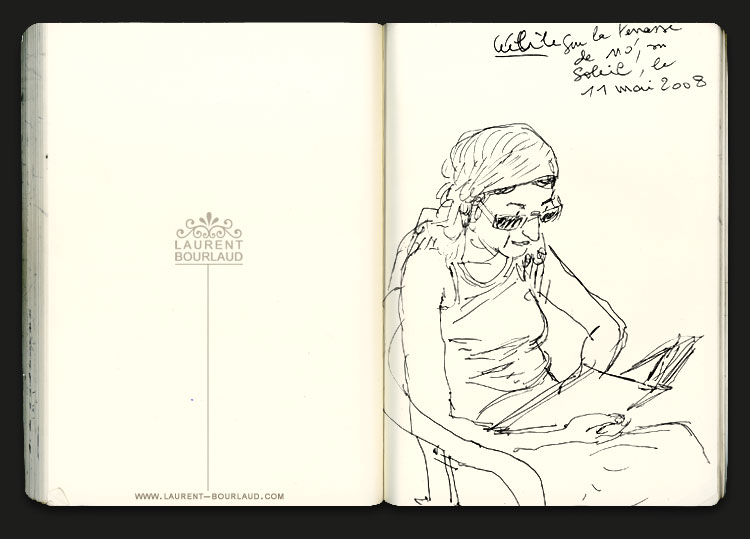 LAURENT
BOURLAUD
WWW.LAURENT-BOURLAUD.COM
sur la terrasse
de no, au
Soleil, le
11 mai 2008